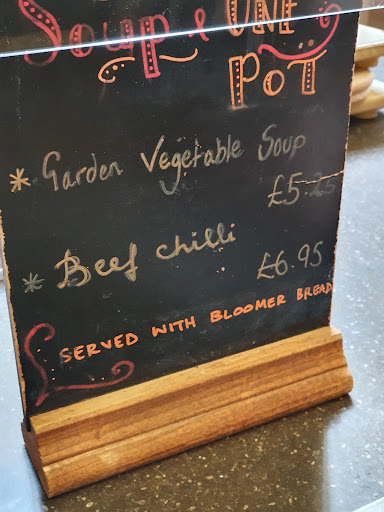 Soup & ONE
POT
* Garden Vegetable Soup
£5.25
* Beef chilli
£6.95
SERVED WITH BLOOMER BREAD